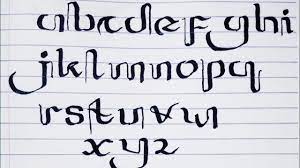 abcdefghi
jklmnopq
rstuvw
xyz